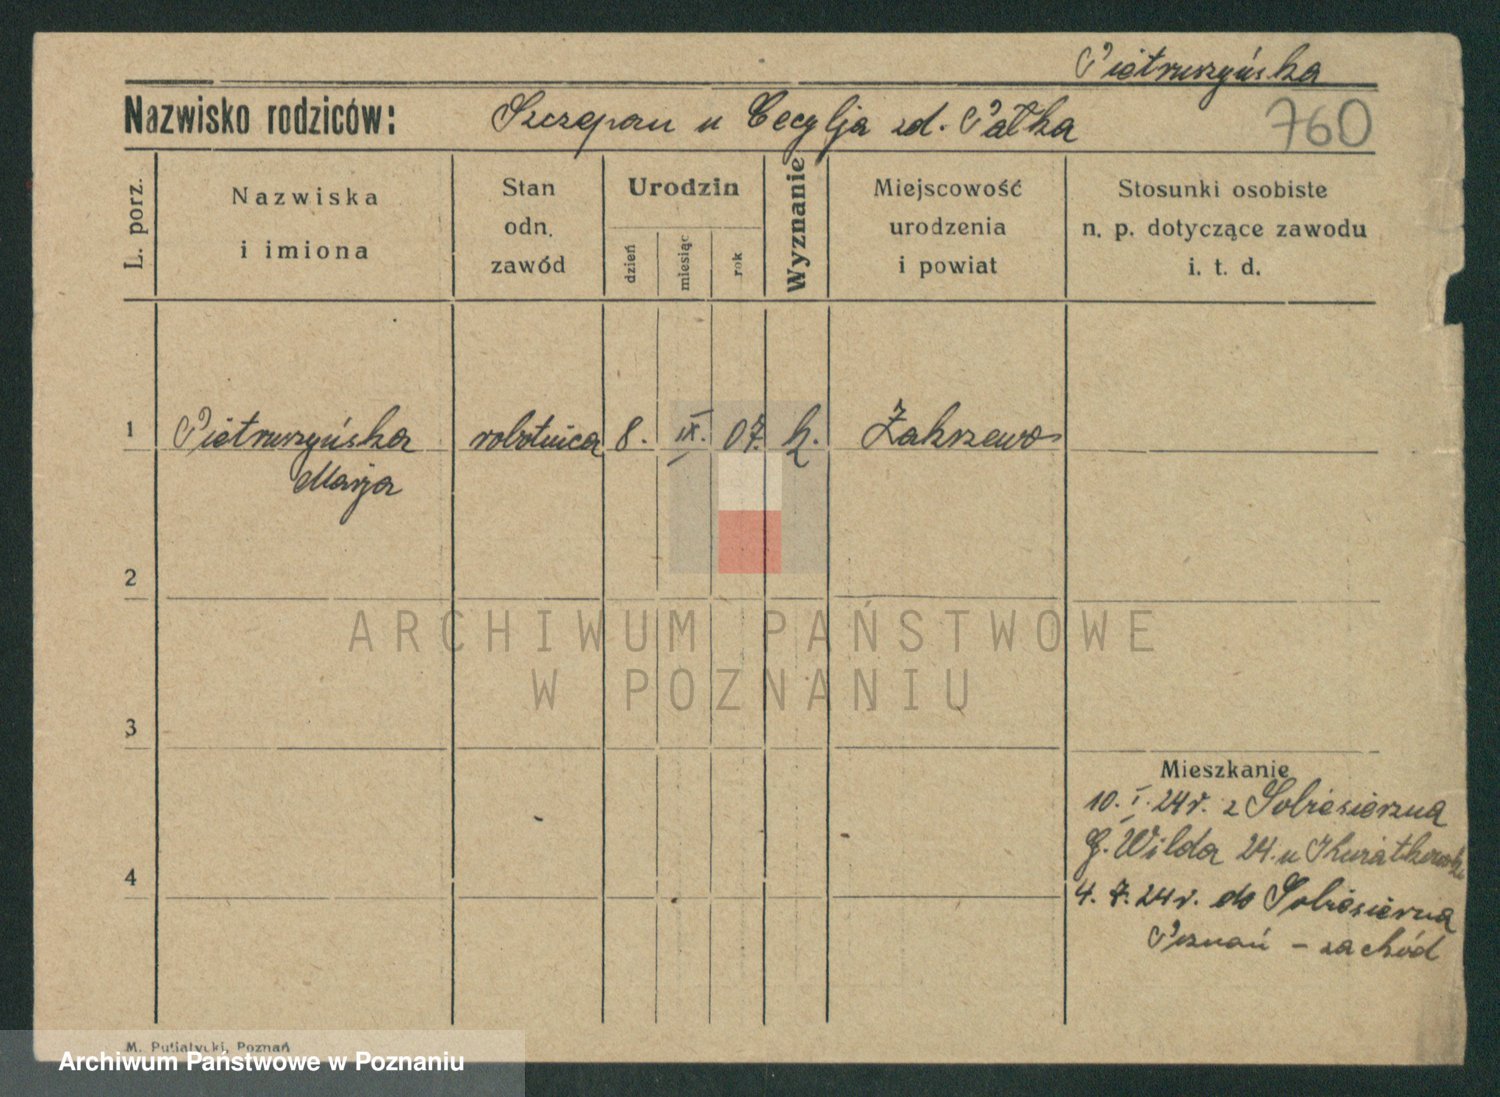 Pietruszyńska
Nazwisko rodziców: Szczepan u Cecylja zd. Pałka
760
L. porz.
Nazwiska
i imiona
Stan
odn.
zawód
Urodzin
dzień
miesiąc
rok
Wyznanie
Miejscowość
urodzenia
i powiat
Stosunki osobiste
n. p. dotyczące zawodu
i. t. d.
1 Pietruszyńska robotnica 8. IX. 07. k. Zakrzewo
Marja
2
3
4
Mieszkanie
10. I. 24r. z Sobiesierzna
G. Wilda 24. u
4. 7. 24r. do Sobiesierzna
Poznań – zachód
ARCHIWUM PAŃSTWOWE
W POZNANIU
M. Putiatycki, Poznań
Archiwum Państwowe w Poznaniu